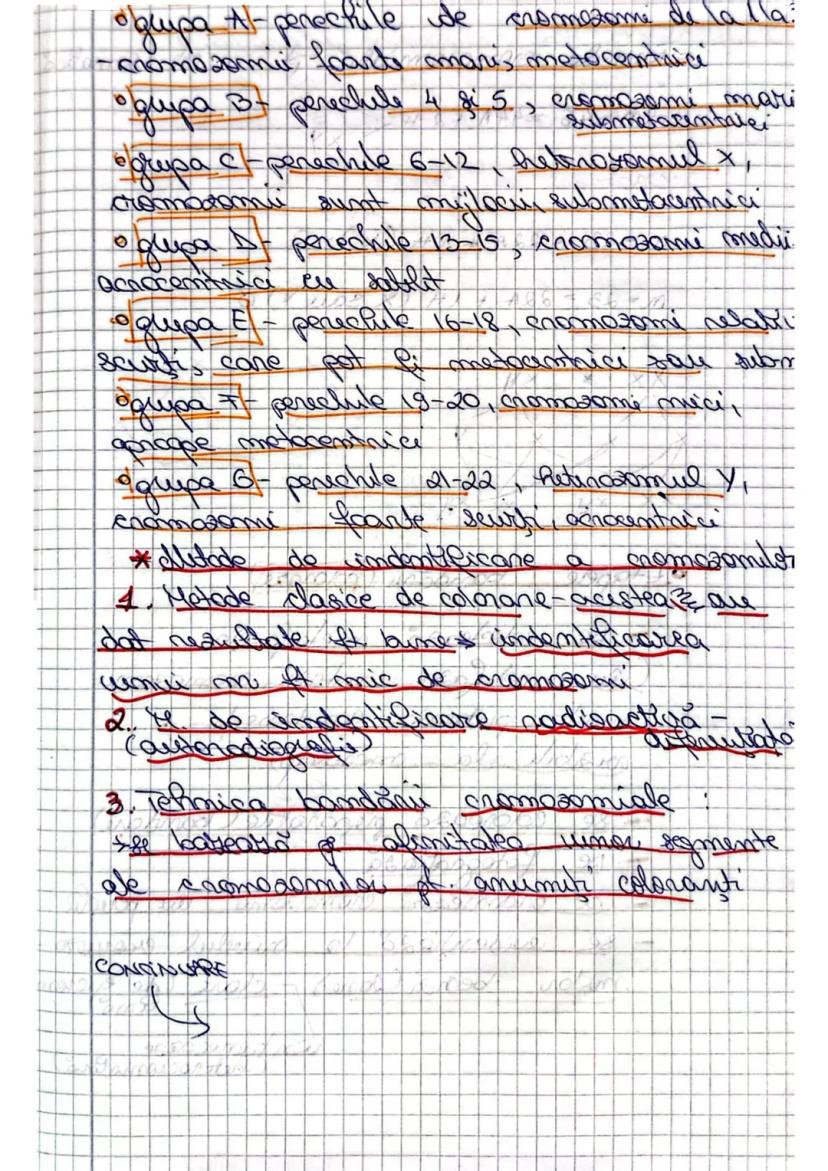 grupa A - perechile de cromozomi de la 1 la
- cromozomii foarte mari, metocentrici
grupa B - perechile 4 și 5, cromozomi mari
submetacentrici
grupa C - perechile 6-12, heterozomul X,
cromozomii sunt mijlocii, submetacentrici
grupa D - perechile 13-15, cromozomi medii
acrocentrici cu satelit
grupa E - perechile 16-18, cromozomi relativ
scurți, care pot fi metocentrici sau subm
grupa F - perechile 19-20, cromozomi mici,
aproape metocentrici
grupa G - perechile 21-22, heterozomul Y,
cromozomi foarte scurți, acrocentrici
* Metode de indentificare a cromozomilor
1. Metode clasice de colorare - acestea au
dat rezultate ft bune indentificarea
unui nr ft. mic de cromozomi
2. M. de indentificare radioactivă -
(autoradiografii)
3. Tehnica bandării cromozomiale :
→ se bazează pe afinitatea unor segmente
ale cromozomilor pt. anumiți coloranți
CONTINUARE